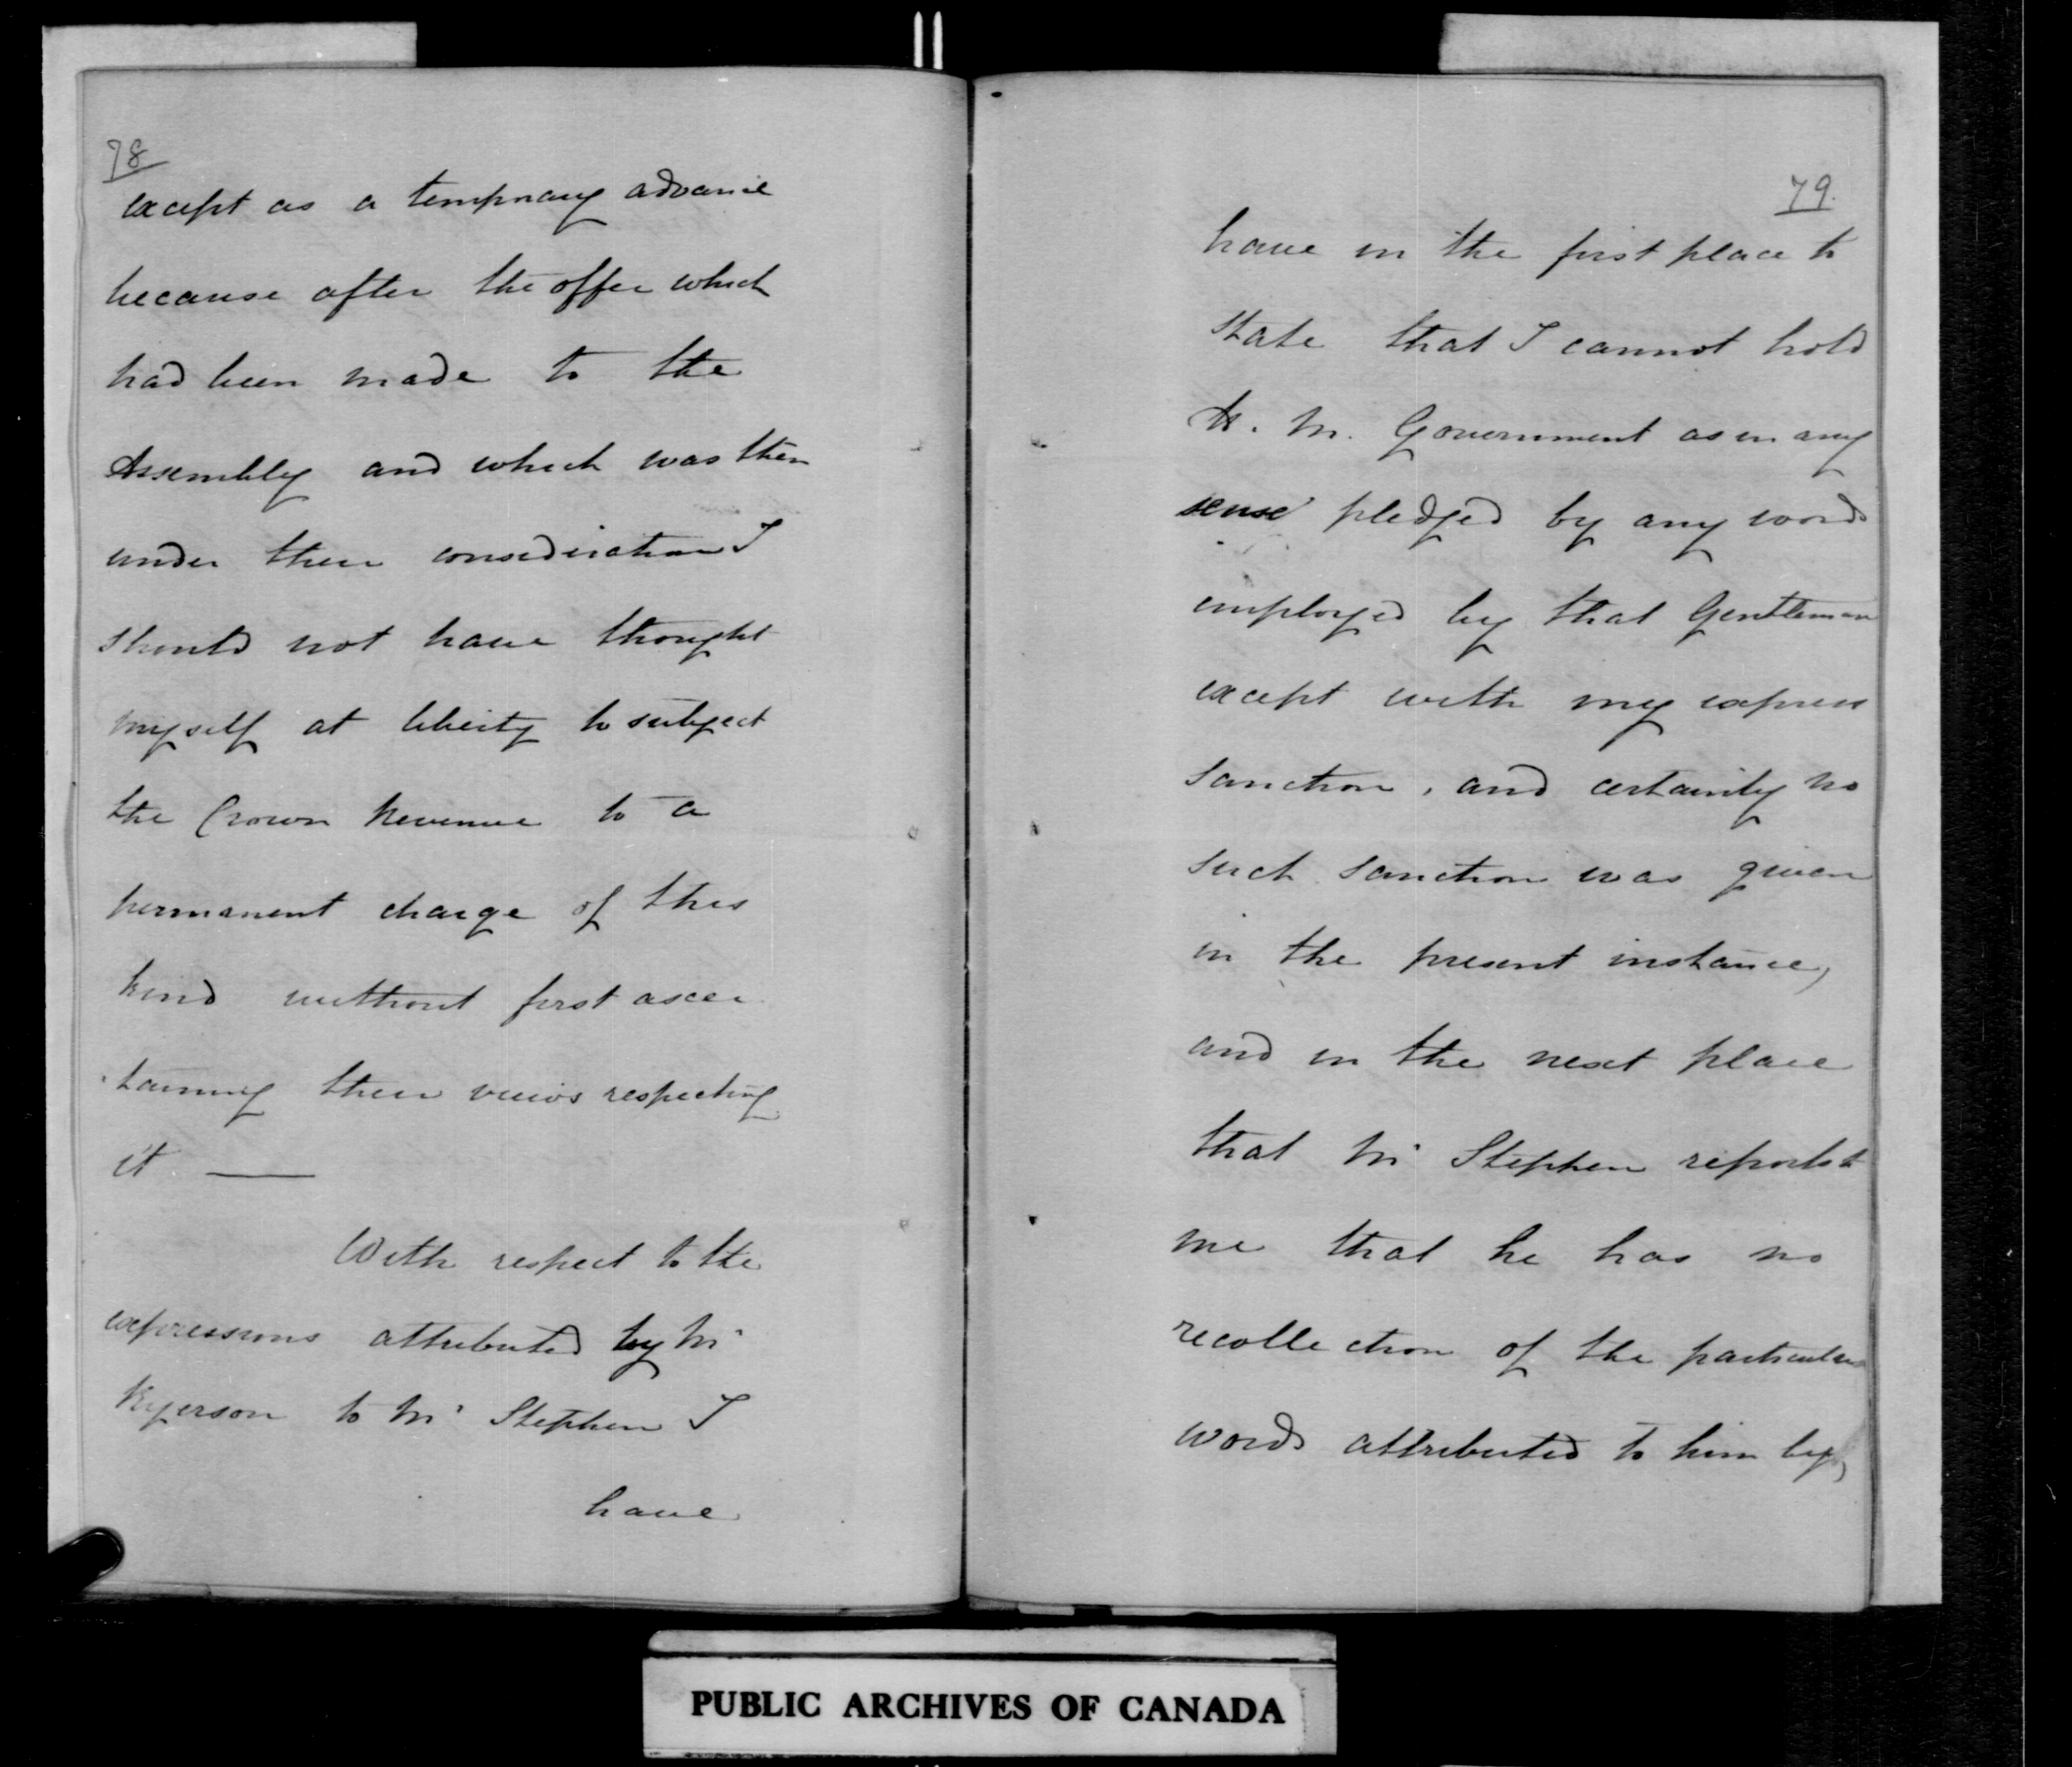 78
except as a temporary advance
because after the offer which
had been made to the
Assembly and which was then
under their consideration I
should not have thought
myself at liberty to subject
the Crown Revenue to a
permanent charge of this
kind without first ascer
-taining their views respecting
it —
With respect to the
expressions attributed by Mr
Ryerson to Mr Stephen I
have
79.
have in the first place to
state that I cannot hold
H. M. Government as in any
sense pledged by any words
employed by that Gentleman
except with my express
sanction, and certainly no
such sanction was given
in the present instance,
and in the next place
that Mr Stephen reports to
me that he has no
recollection of the particular
words attributed to him by,
PUBLIC ARCHIVES OF CANADA